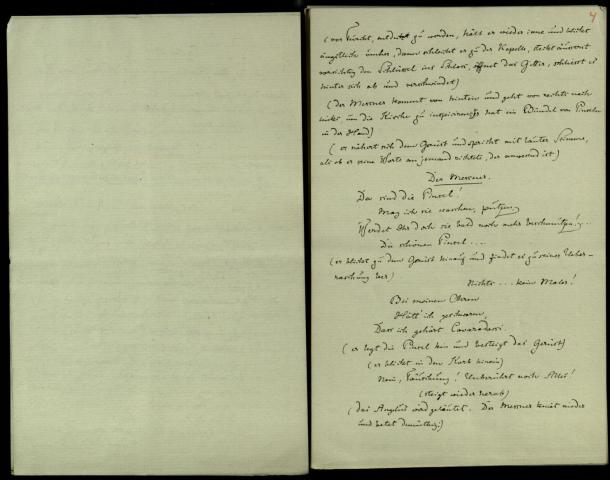 4
(vor Furcht, entdeckt zu werden, hält er wieder inne und blickt
ängstlich umher, dann schleicht er zu der Kapelle, steckt äusserst
vorsichtig den Schlüssel ins Schloss, öffnet das Gitter, schliesst es
hinter sich ab und verschwindet)
(Der Messner kommt von hinten und geht von rechts nach
links um die Kirche zu inspicieren, hat ein Bündel von Pinseln
in der Hand)
(er nähert sich dem Gerüst und spricht mit lauter Stimme,
als ob er seine Worte an jemand richtete, der anwesend ist)
Der Messner.
Da sind die Pinsel!
Mag ich sie waschen, putzen,
Werdet Ihr doch sie bald noch mehr beschmutzen! . .
Die schönen Pinsel . . . .
(er blickt zu dem Gerüst hinauf und findet es zu seiner Ueber-
raschung leer)
Nichts . . . kein Maler!
Bei meinen Ohren
Hätt' ich geschworen,
Dass ich gehört Cavaradossi.
(er legt die Pinsel hin und besteigt das Gerüst)
(er blickt in den Korb hinein)
Nein, Täuschung! Unberührt noch Alles!
(steigt wieder herab)
(das Angelus wird geläutet. Der Messner kniet nieder
und betet demüthig:)